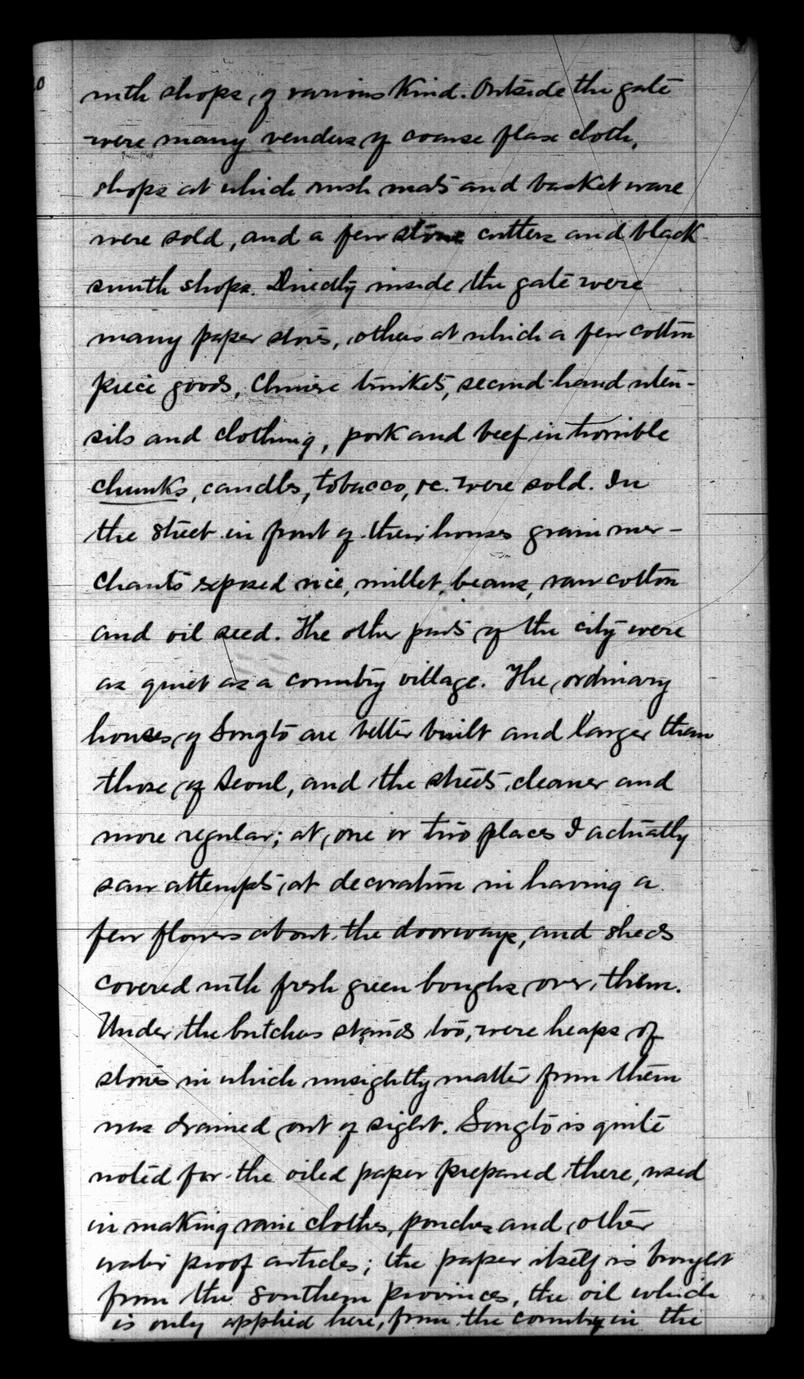 with shops, of various kind. Outside the gate
were many venders of coarse flax cloth,
shops at which rush mats and basket ware
were sold, and a few stone cutters and black
smith shops. Directly inside the gate were
many paper stores, others at which a few cotton
piece goods, Chinese trinkets, second-hand uten-
sils and clothing, pork and beef in horrible
chunks, candles, tobacco, &c. were sold. In
the street in front of their houses grain mer-
chants exposed rice, millet, beans, raw cotton
and oil seed. The other parts of the city were
as quiet as a country village. The ordinary
houses of Songto are better built and larger than
those of Seoul, and the streets cleaner and
more regular; at one or two places I actually
saw attempts at decoration in having a
few flowers about the doorways, and sheds
covered with fresh green boughs over them.
Under the butchers stands too, were heaps of
stones in which unsightly matter from them
was drained out of sight. Songto is quite
noted for the oiled paper prepared there, used
in making rain clothes, pouches and other
water proof articles; the paper itself is brought
from the southern provinces, the oil which
is only applied here, from the country in the